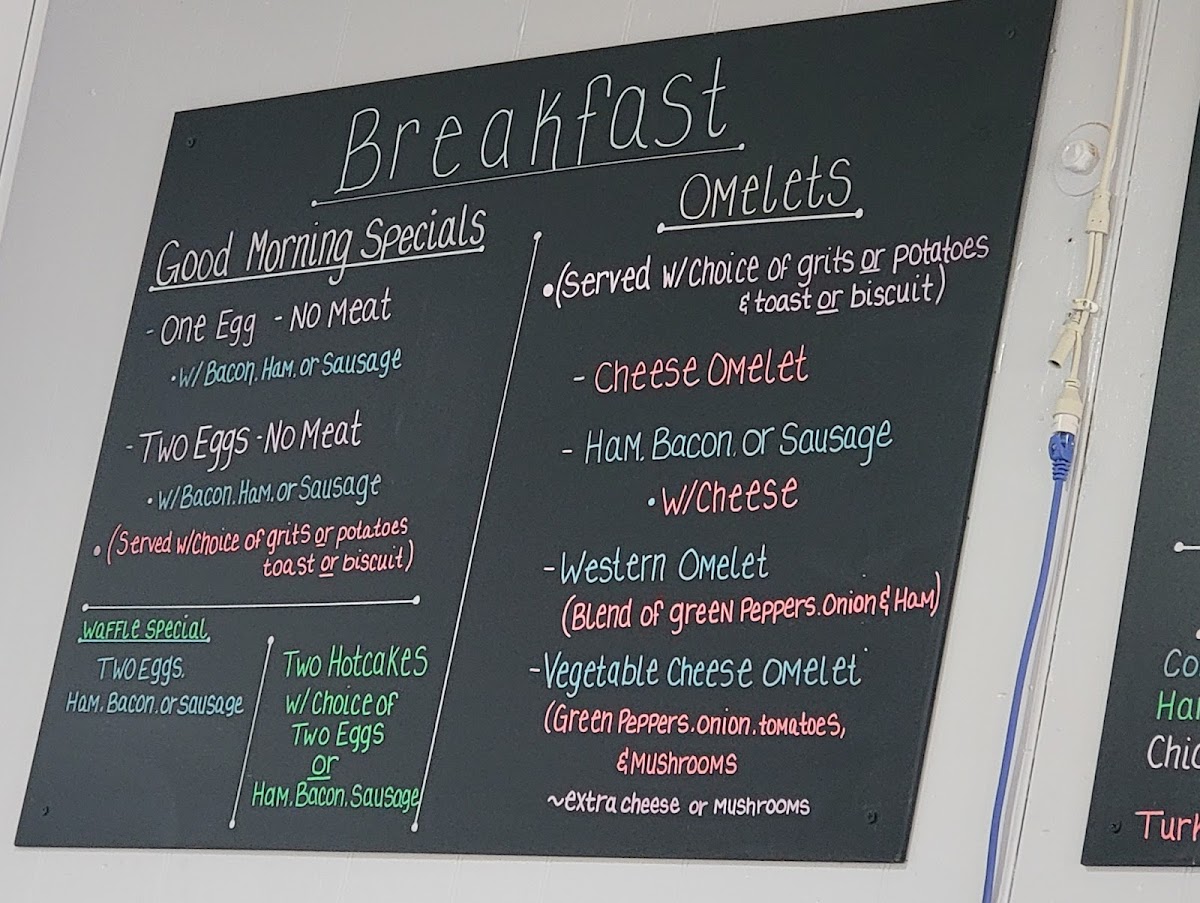 Breakfast
Good Morning Specials
- One Egg - No Meat
• W/ Bacon, Ham, or Sausage
- Two Eggs - No Meat
• W/ Bacon, Ham, or Sausage
• (Served w/Choice of grits or potatoes
toast or biscuit)
Waffle Special
Two Eggs,
Ham, Bacon, or sausage
Two Hotcakes
w/ Choice of
Two Eggs
or
Ham, Bacon, Sausage
Omelets
• (Served w/Choice of grits or potatoes
& toast or biscuit)
- Cheese Omelet
- Ham, Bacon, or Sausage
• W/Cheese
- Western Omelet
(Blend of green Peppers, Onion & Ham)
- Vegetable Cheese Omelet
(Green Peppers, onion, tomatoes,
& Mushrooms
~extra cheese or Mushrooms